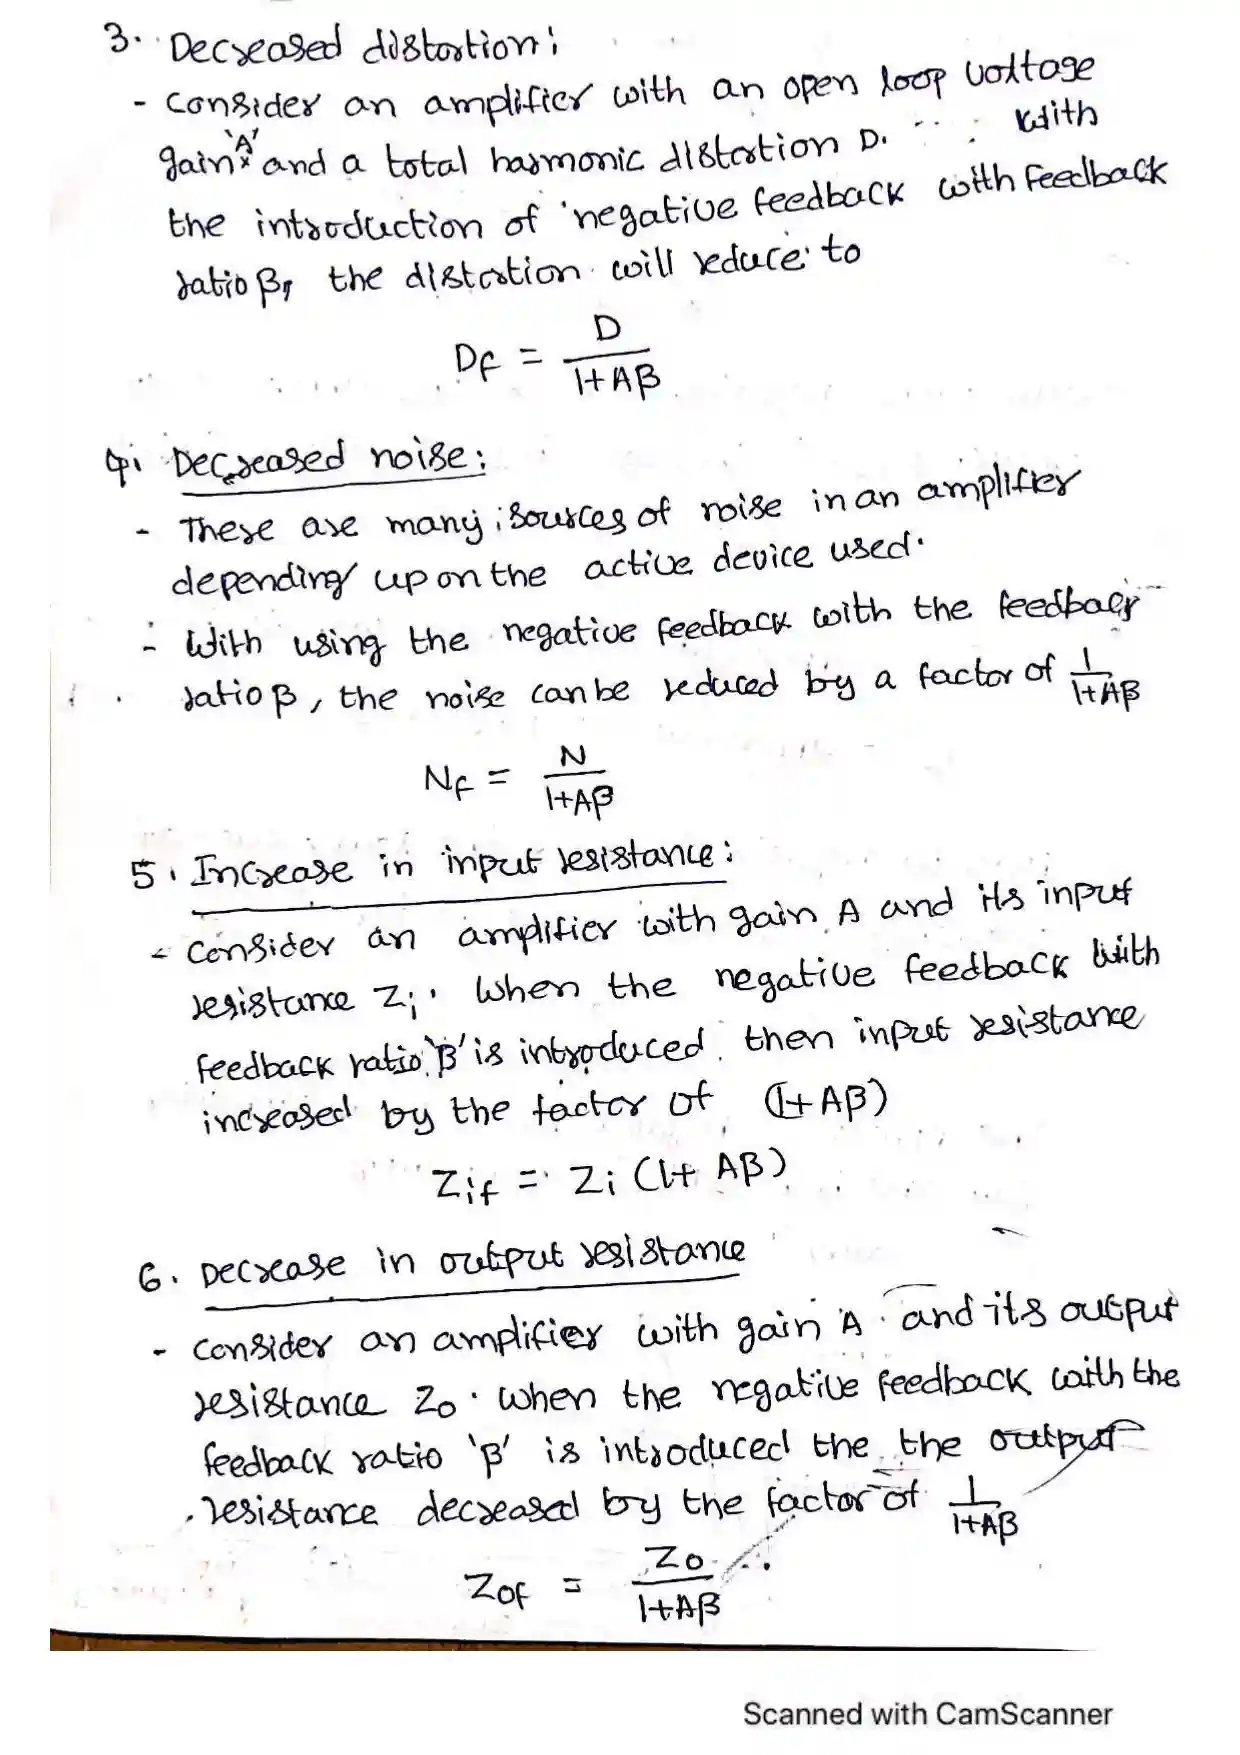 3. Decreased distortion:
- Consider an amplifier with an open loop voltage
gain 'A' and a total harmonic distortion D. With
the introduction of negative feedback with feedback
ratio β, the distortion will reduce to
Df = D / 1+Aβ
4. Decreased noise:
- There are many sources of noise in an amplifier
depending upon the active device used.
- With using the negative feedback with the feedback
ratio β, the noise can be reduced by a factor of 1/1+Aβ
Nf = N / 1+Aβ
5. Increase in input resistance:
- Consider an amplifier with gain A and its input
resistance Zi. When the negative feedback with
feedback ratio 'β' is introduced. then input resistance
increased by the factor of (1+Aβ)
Zif = Zi (1+Aβ)
6. Decrease in output resistance
- Consider an amplifier with gain A and its output
resistance Zo. When the negative feedback with the
feedback ratio 'β' is introduced the the output
resistance decreased by the factor of 1/1+Aβ
Zof = Zo / 1+Aβ
Scanned with CamScanner